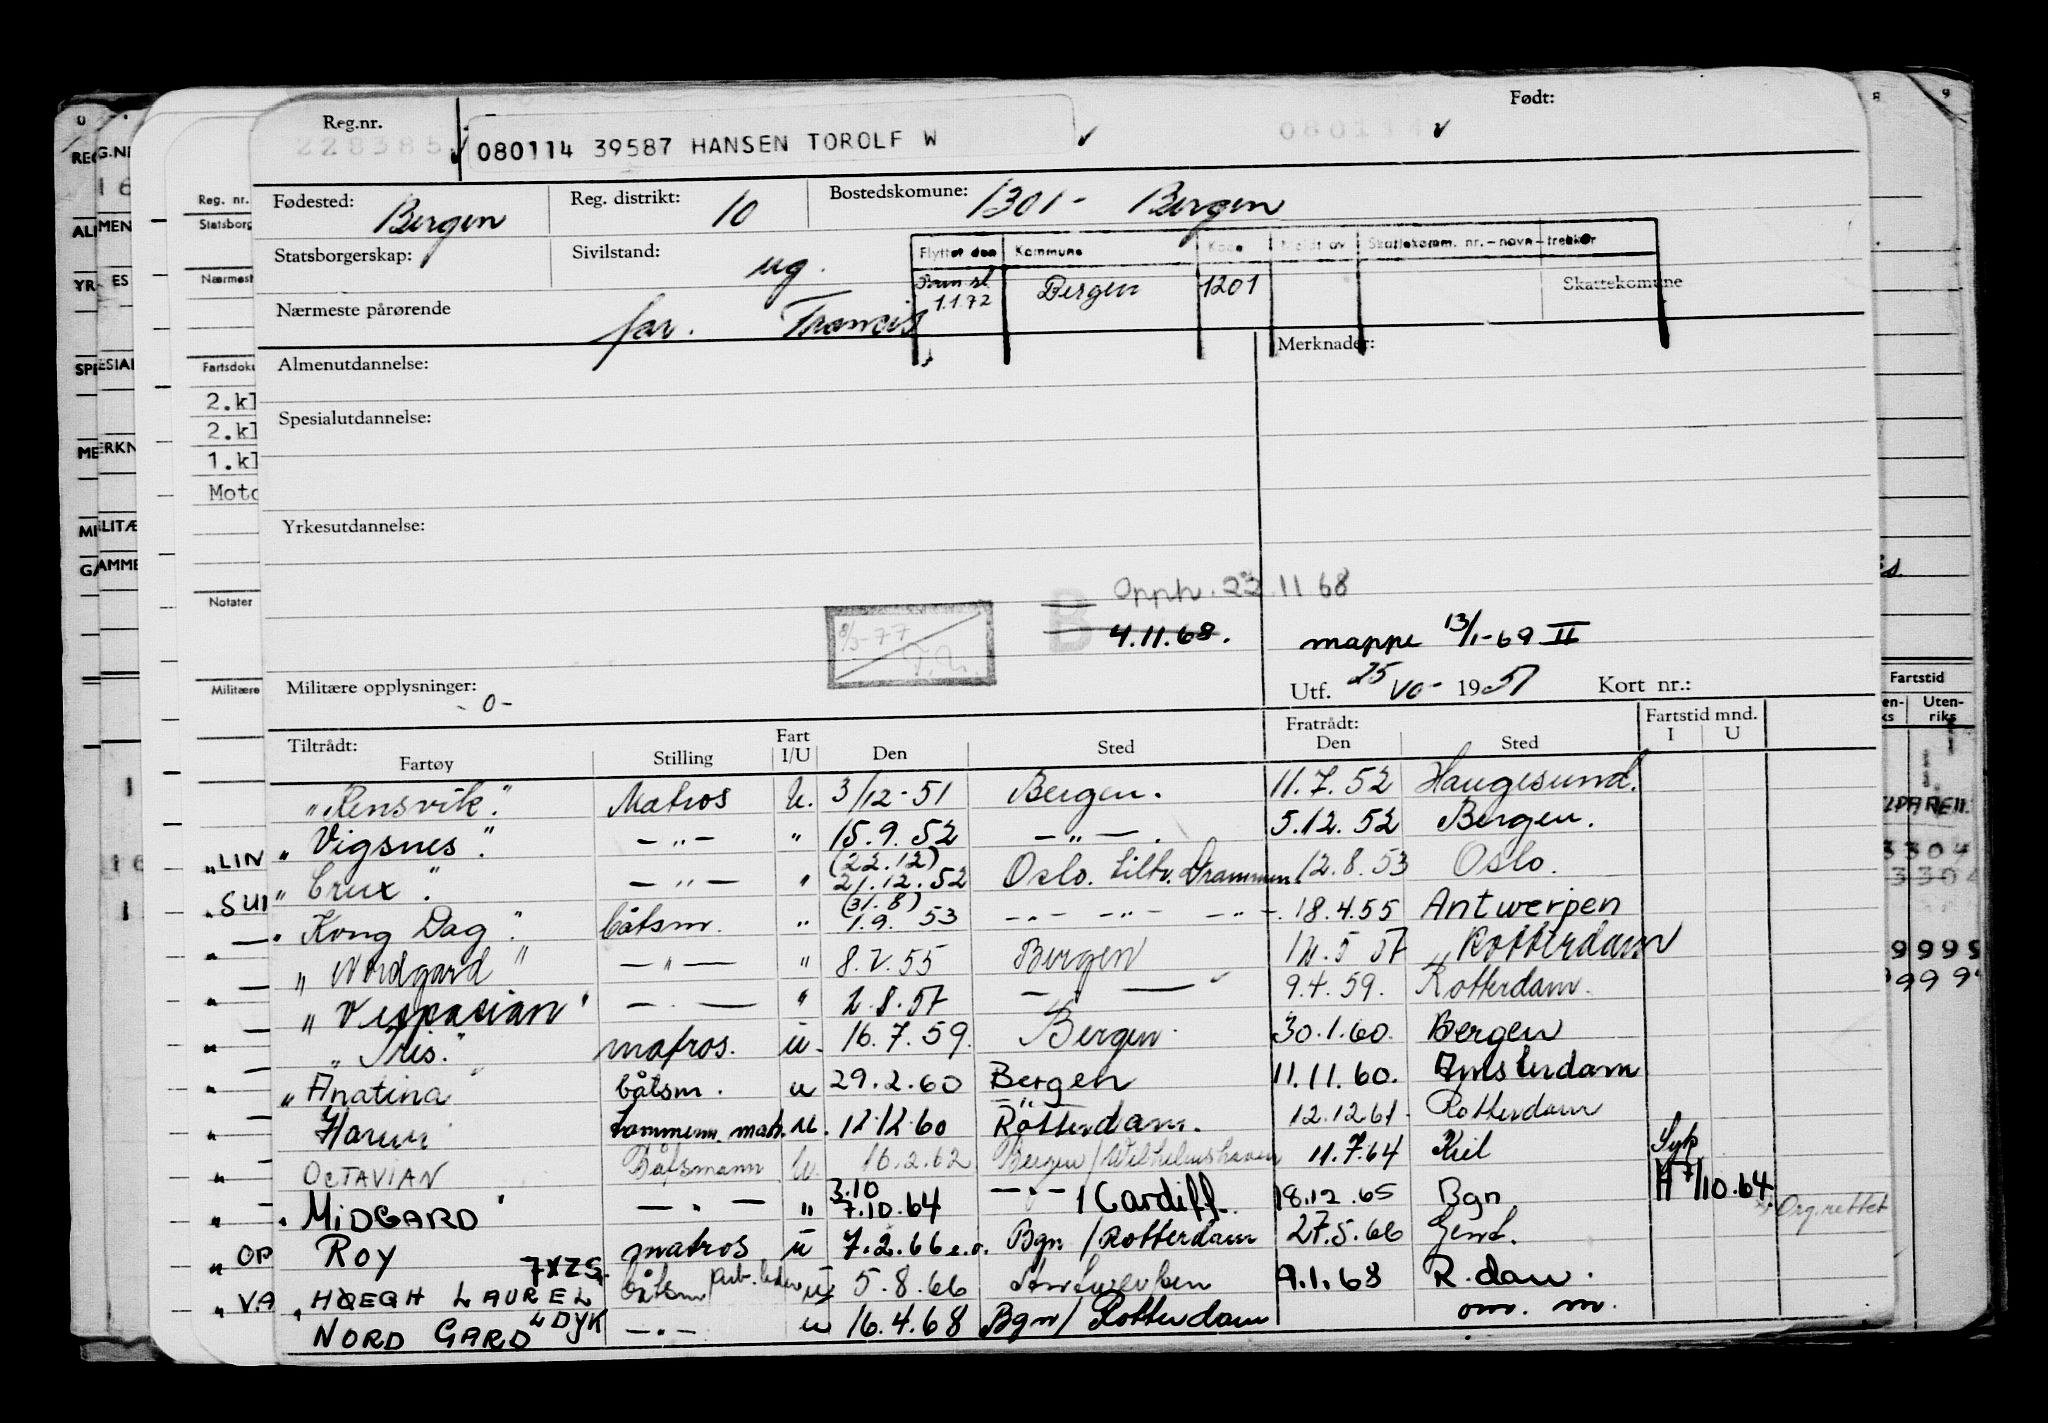 Reg.nr.
Født:
228385
080114 39587 HANSEN TOROLF W
080114
Fødested: Bergen Reg. distrikt: 10 Bostedskomune: 1301- Bergen
Statsborgerskap: Sivilstand: ug.
Flyttet den Kommune Kode Meldt av Skattekomm. nr.-navn-trekker
1.1.72 Bergen 1201
Skattekomune
Nærmeste pårørende far. Francis
Almenutdannelse:
Merknader:
Spesialutdannelse:
Yrkesutdannelse:
B Opph. 22.11 68
8/3-77
4.11.68. mappe 13/1-69 II
Militære opplysninger: -0-
Utf. 25/VO- 1951 Kort nr.:
Tiltrådt: Fratrådt: Fartstid mnd.
Fartøy Stilling Fart I/U Den Sted Den Sted I U
"Rensvik". Matros U. 3/12-51 Bergen. 11.7.52 Haugesund.
" Vigsnes". -"- " 15.9.52 -"-. 5.12.52 Bergen.
" Crux " -"- " (22.12) 21.12.52 Oslo. tiltr. Drammen. 12.8.53 Oslo.
" Kong Dag ". båtsm. " (31.8) 1.9.53 -"- -"- -"-. 18.4.55 Antwerpen
" Nordgard " -"- " 8.V.55 Bergen 12.5 57 Rotterdam
" Vespasian " -"- " 2.8.57 -"- 9.4.59. Rotterdam.
" Iris." matros. u. 16.7.59. Bergen. 30.1.60. Bergen
" Anatina båtsm. u 29.2.60 Bergen 11.11.60. Amsterdam
Harum tømmerm. matr. u. 12.12.60 Rotterdam. 12.12 61. Rotterdam
OCTAVIAN Båtsmann U. 16.2.62 Bergen/Wilhelmshaven 11.7.64 Kiel Syk
" MIDGARD " -"- " 3.10 7.10.64 -"- / Cardiff. 18.12.65 Bgn H 7/10.64 Org.rettet
ROY matros u 7.2.66 e.o. Bgn / Rotterdam 27.5.66 Gent.
" HØEGH LAUREL 7XZS. båtsm arb.leder u 5.8.66 Antwerpen 9.1.68 R.dam.
NORD GARD LDYK -"- u 16.4.68 Bgn/ Rotterdam om. m.
Reg. nr.
Statsborg
Nærmest
Fartsdoku
2.kl
2.kl
1.kl
Moto
Notater
Militære
"LIN
"SUI
" OP
" VA
Fartstid
Uten-
riks